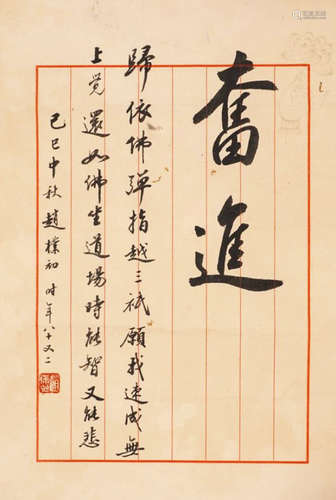 奮進
歸依佛彈指越三祇願我速成無
上觉還如佛坐道場時能智又能悲
己巳中秋趙樸初时年八十又二